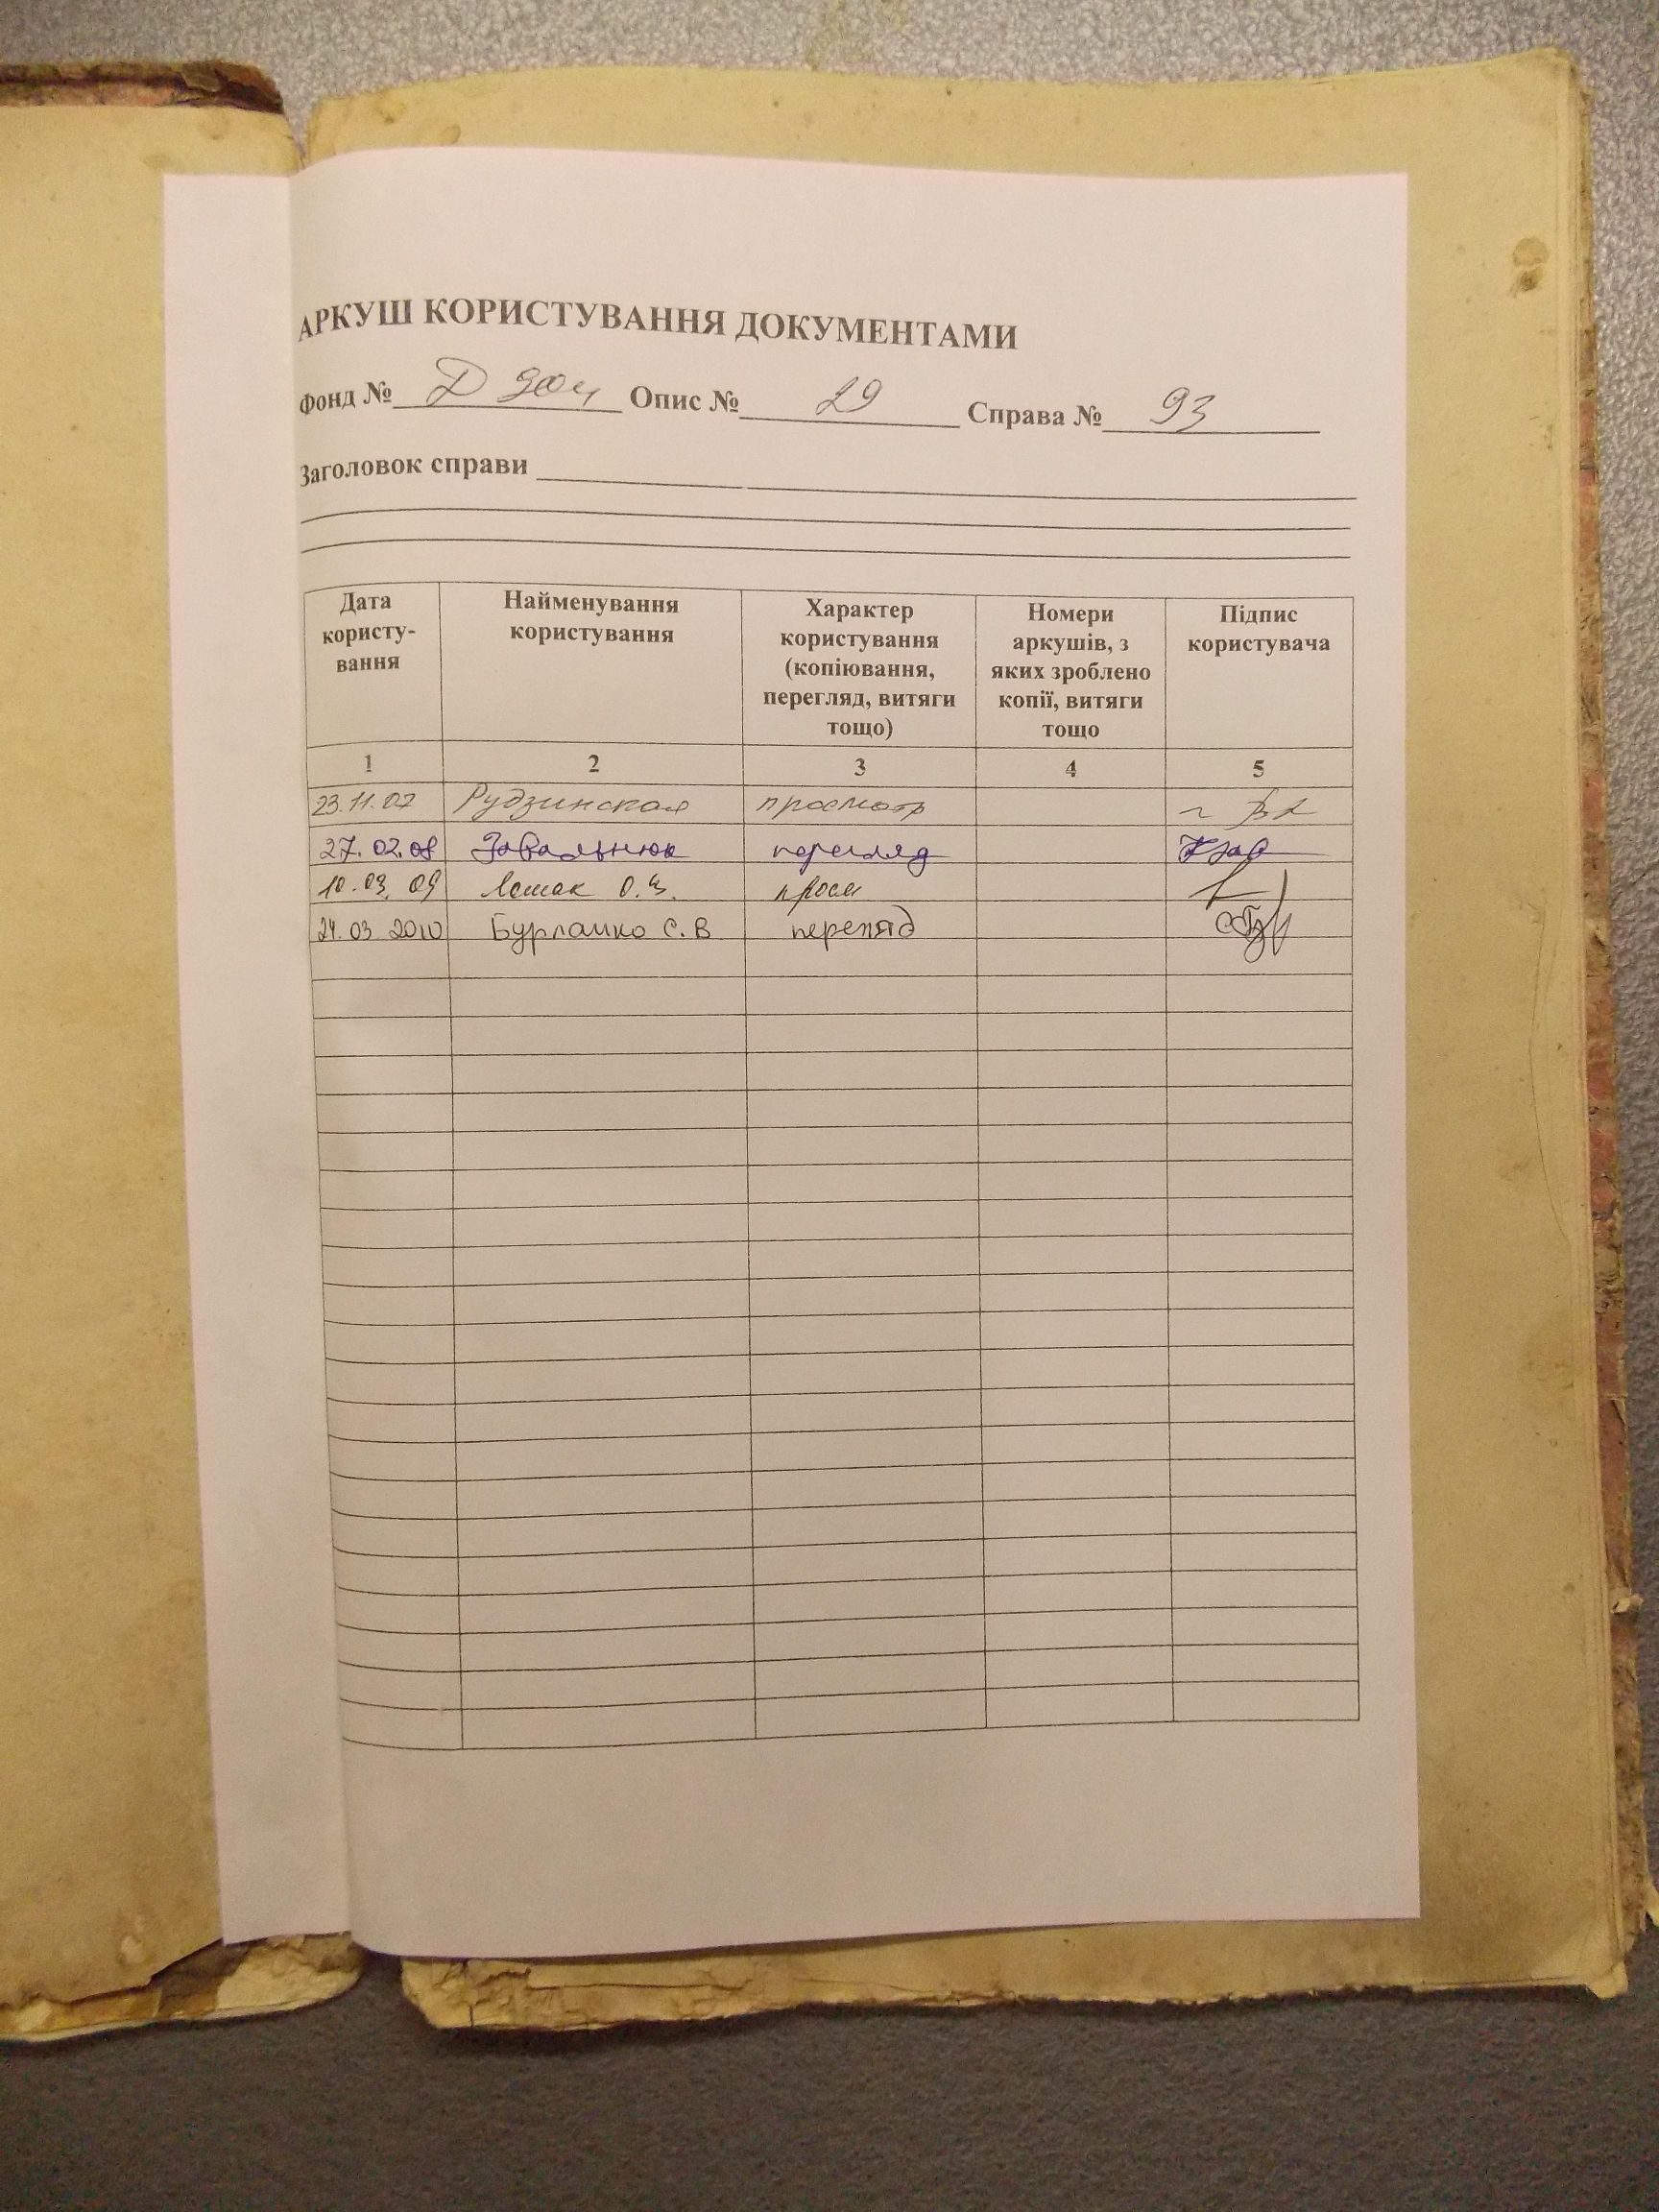 АРКУШ КОРИСТУВАННЯ ДОКУМЕНТАМИ
Фонд № Д 904 Опис № 29 Справа № 93
Заголовок справи
Дата користу-вання
Найменування користування
Характер користування (копіювання, перегляд, витяги тощо)
Номери аркушів, з яких зроблено копії, витяги тощо
Підпис користувача
1 2 3 4 5
23.11.07 Рудзинская просмотр
27.02.08 Завальнюк перегляд
10.03.09 Лешак О.Я. просм
24.03 2010 Бурлашко С.В перегляд